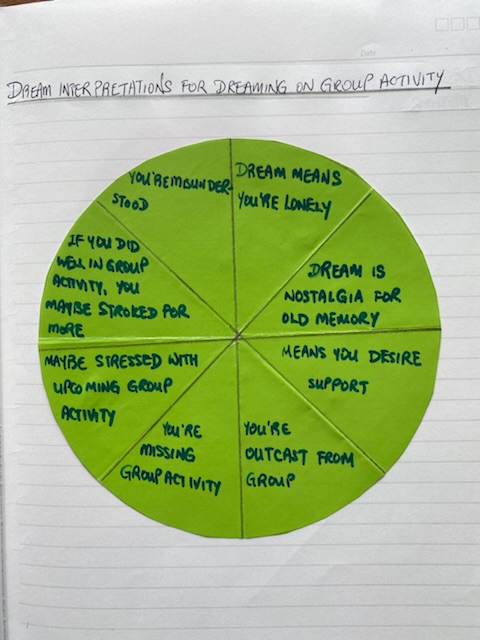 Date
DREAM INTERPRETATIONS FOR DREAMING ON GROUP ACTIVITY
DREAM MEANS
YOU'RE LONELY
DREAM IS
NOSTALGIA FOR
OLD MEMORY
MEANS YOU DESIRE
SUPPORT
YOU'RE
OUTCAST FROM
GROUP
YOU'RE
MISSING
GROUP ACTIVITY
MAYBE STRESSED WITH
UPCOMING GROUP
ACTIVITY
IF YOU DID
WELL IN GROUP
ACTIVITY, YOU
MAYBE STROKED FOR
MORE
YOU'RE MISUNDER
STOOD